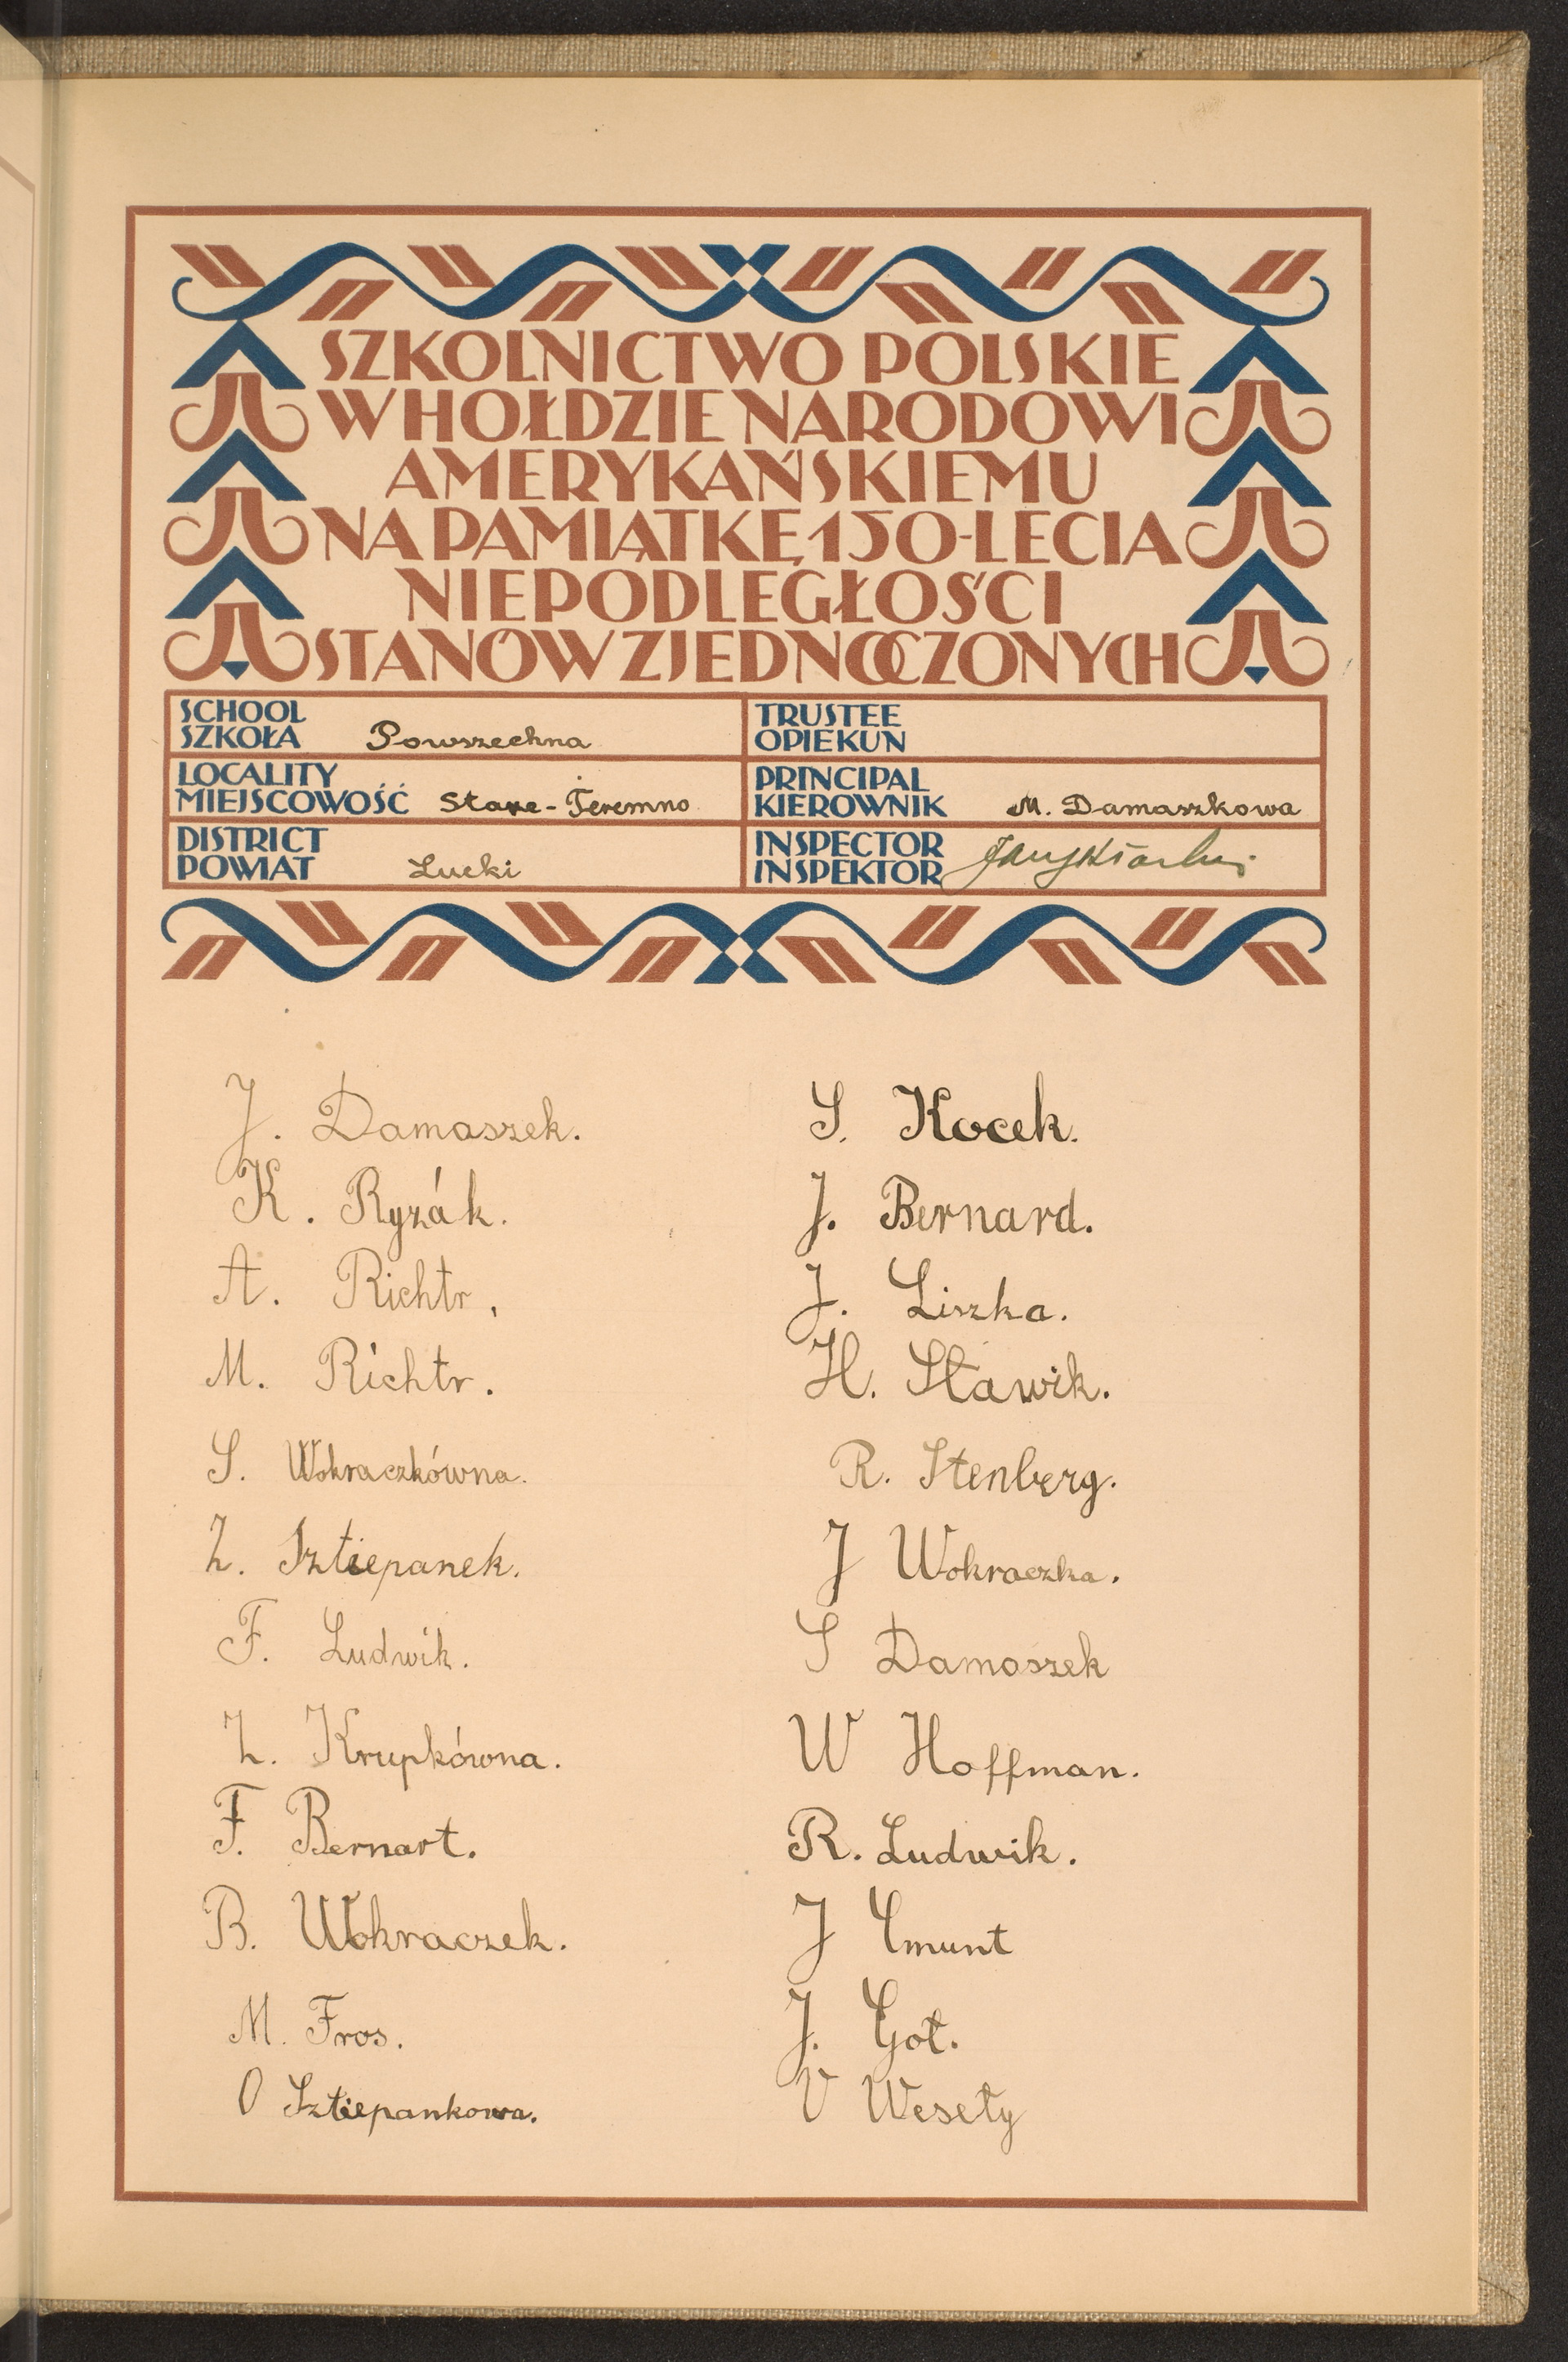 SZKOLNICTWO POLSKIE
W HOŁDZIE NARODOWI
AMERYKAŃSKIEMU
NA PAMIĄTKĘ 150-LECIA
NIEPODLEGŁOŚCI
STANÓW ZJEDNOCZONYCH
SCHOOL
SZKOŁA Powszechna
TRUSTEE
OPIEKUN
LOCALITY
MIEJSCOWOŚĆ Stare-Teremno
PRINCIPAL
KIEROWNIK M. Damaszkowa
DISTRICT
POWIAT Łucki
INSPECTOR
INSPEKTOR
J. Damaszek.
K. Ryzák.
A. Richtr.
M. Richtr.
S. Wokraczkówna.
Z. Sztiepanek.
F. Ludwik.
Z. Krupkówna.
F. Bernart.
B. Wokraczek.
M. Fros.
O Sztiepankowa.
S. Kocek.
J. Bernard.
J. Liszka.
H. Sławik.
R. Stenberg.
J Wokraczka.
S Damaszek
W Hoffman.
R. Ludwik.
J Cmunt
J. Got.
V Weseły